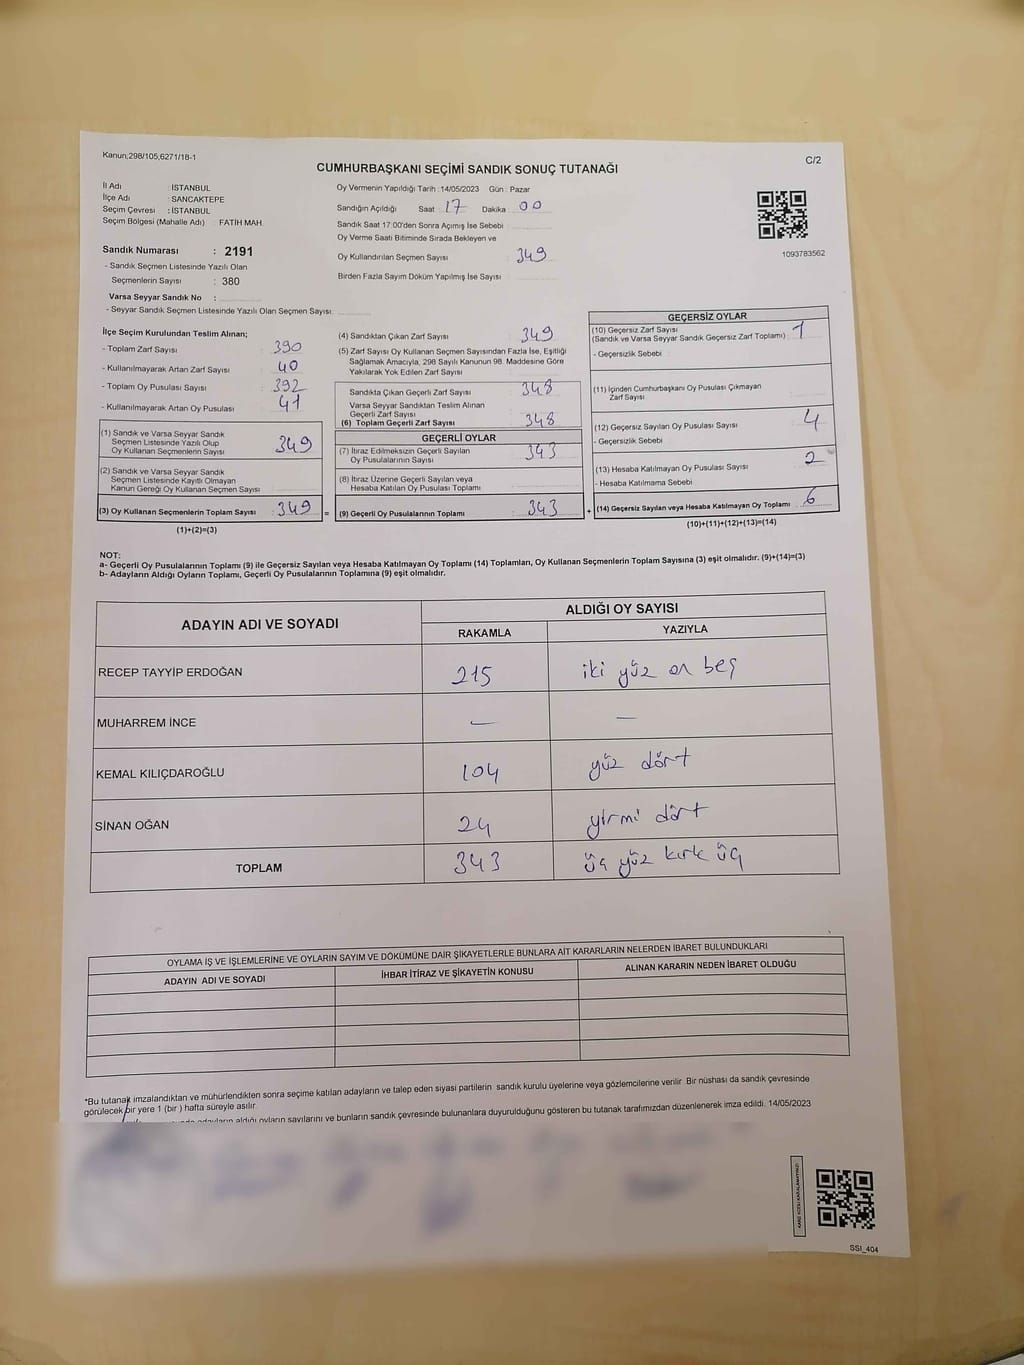 Kanun;298/105,6271/18-1
C/2
CUMHURBAŞKANI SEÇİMİ SANDIK SONUÇ TUTANAĞI
İl Adı : İSTANBUL
İlçe Adı : SANCAKTEPE
Seçim Çevresi : İSTANBUL
Seçim Bölgesi (Mahalle Adı) : FATİH MAH.
Sandık Numarası : 2191
- Sandık Seçmen Listesinde Yazılı Olan
Seçmenlerin Sayısı : 380
Varsa Seyyar Sandık No :
- Seyyar Sandık Seçmen Listesinde Yazılı Olan Seçmen Sayısı:
Oy Vermenin Yapıldığı Tarih : 14/05/2023 Gün : Pazar
Sandığın Açıldığı Saat : 17 Dakika : 00
Sandık Saat 17:00'den Sonra Açımış İse Sebebi :
Oy Verme Saati Bitiminde Sırada Bekleyen ve
Oy Kullandırılan Seçmen Sayısı : 349
Birden Fazla Sayım Döküm Yapılmış İse Sayısı :
1093783562
İlçe Seçim Kurulundan Teslim Alınan;
- Toplam Zarf Sayısı : 390
- Kullanılmayarak Artan Zarf Sayısı : 40
- Toplam Oy Pusulası Sayısı : 392
- Kullanılmayarak Artan Oy Pusulası : 41
(1) Sandık ve Varsa Seyyar Sandık
Seçmen Listesinde Yazılı Olup
Oy Kullanan Seçmenlerin Sayısı : 349
(2) Sandık ve Varsa Seyyar Sandık
Seçmen Listesinde Kayıtlı Olmayan
Kanun Gereği Oy Kullanan Seçmen Sayısı :
(3) Oy Kullanan Seçmenlerin Toplam Sayısı : 349 =
(1)+(2)=(3)
(4) Sandıktan Çıkan Zarf Sayısı : 349
(5) Zarf Sayısı Oy Kullanan Seçmen Sayısından Fazla İse, Eşitliği
Sağlamak Amacıyla, 298 Sayılı Kanunun 98. Maddesine Göre
Yakılarak Yok Edilen Zarf Sayısı :
Sandıkta Çıkan Geçerli Zarf Sayısı : 348
Varsa Seyyar Sandıktan Teslim Alınan
Geçerli Zarf Sayısı :
(6) Toplam Geçerli Zarf Sayısı : 348
GEÇERLİ OYLAR
(7) İtiraz Edilmeksizin Geçerli Sayılan
Oy Pusulalarının Sayısı : 343
(8) İtiraz Üzerine Geçerli Sayılan veya
Hesaba Katılan Oy Pusulası Toplamı :
(9) Geçerli Oy Pusulalarının Toplamı : 343 +
GEÇERSİZ OYLAR
(10) Geçersiz Zarf Sayısı
(Sandık ve Varsa Seyyar Sandık Geçersiz Zarf Toplamı) : 1
- Geçersizlik Sebebi :
(11) İçinden Cumhurbaşkanı Oy Pusulası Çıkmayan
Zarf Sayısı :
(12) Geçersiz Sayılan Oy Pusulası Sayısı : 4
- Geçersizlik Sebebi :
(13) Hesaba Katılmayan Oy Pusulası Sayısı : 2
- Hesaba Katılmama Sebebi :
(14) Geçersiz Sayılan veya Hesaba Katılmayan Oy Toplamı : 6
(10)+(11)+(12)+(13)=(14)
NOT:
a- Geçerli Oy Pusulalarının Toplamı (9) ile Geçersiz Sayılan veya Hesaba Katılmayan Oy Toplamı (14) Toplamları, Oy Kullanan Seçmenlerin Toplam Sayısına (3) eşit olmalıdır. (9)+(14)=(3)
b- Adayların Aldığı Oyların Toplamı, Geçerli Oy Pusulalarının Toplamına (9) eşit olmalıdır.
ADAYIN ADI VE SOYADI
ALDIĞI OY SAYISI
RAKAMLA YAZIYLA
RECEP TAYYİP ERDOĞAN 215 iki yüz on beş
MUHARREM İNCE — —
KEMAL KILIÇDAROĞLU 104 yüz dört
SİNAN OĞAN 24 yirmi dört
TOPLAM 343 üç yüz kırk üç
OYLAMA İŞ VE İŞLEMLERİNE VE OYLARIN SAYIM VE DÖKÜMÜNE DAİR ŞİKAYETLERLE BUNLARA AİT KARARLARIN NELERDEN İBARET BULUNDUKLARI
ADAYIN ADI VE SOYADI İHBAR İTİRAZ VE ŞİKAYETİN KONUSU ALINAN KARARIN NEDEN İBARET OLDUĞU
*Bu tutanak imzalandıktan ve mühürlendikten sonra seçime katılan adayların ve talep eden siyasi partilerin sandık kurulu üyelerine veya gözlemcilerine verilir. Bir nüshası da sandık çevresinde
görülecek bir yere 1 (bir ) hafta süreyle asılır.
adayların aldığı oyların sayılarını ve bunların sandık çevresinde bulunanlara duyurulduğunu gösteren bu tutanak tarafımızdan düzenlenerek imza edildi. 14/05/2023
SSI_404